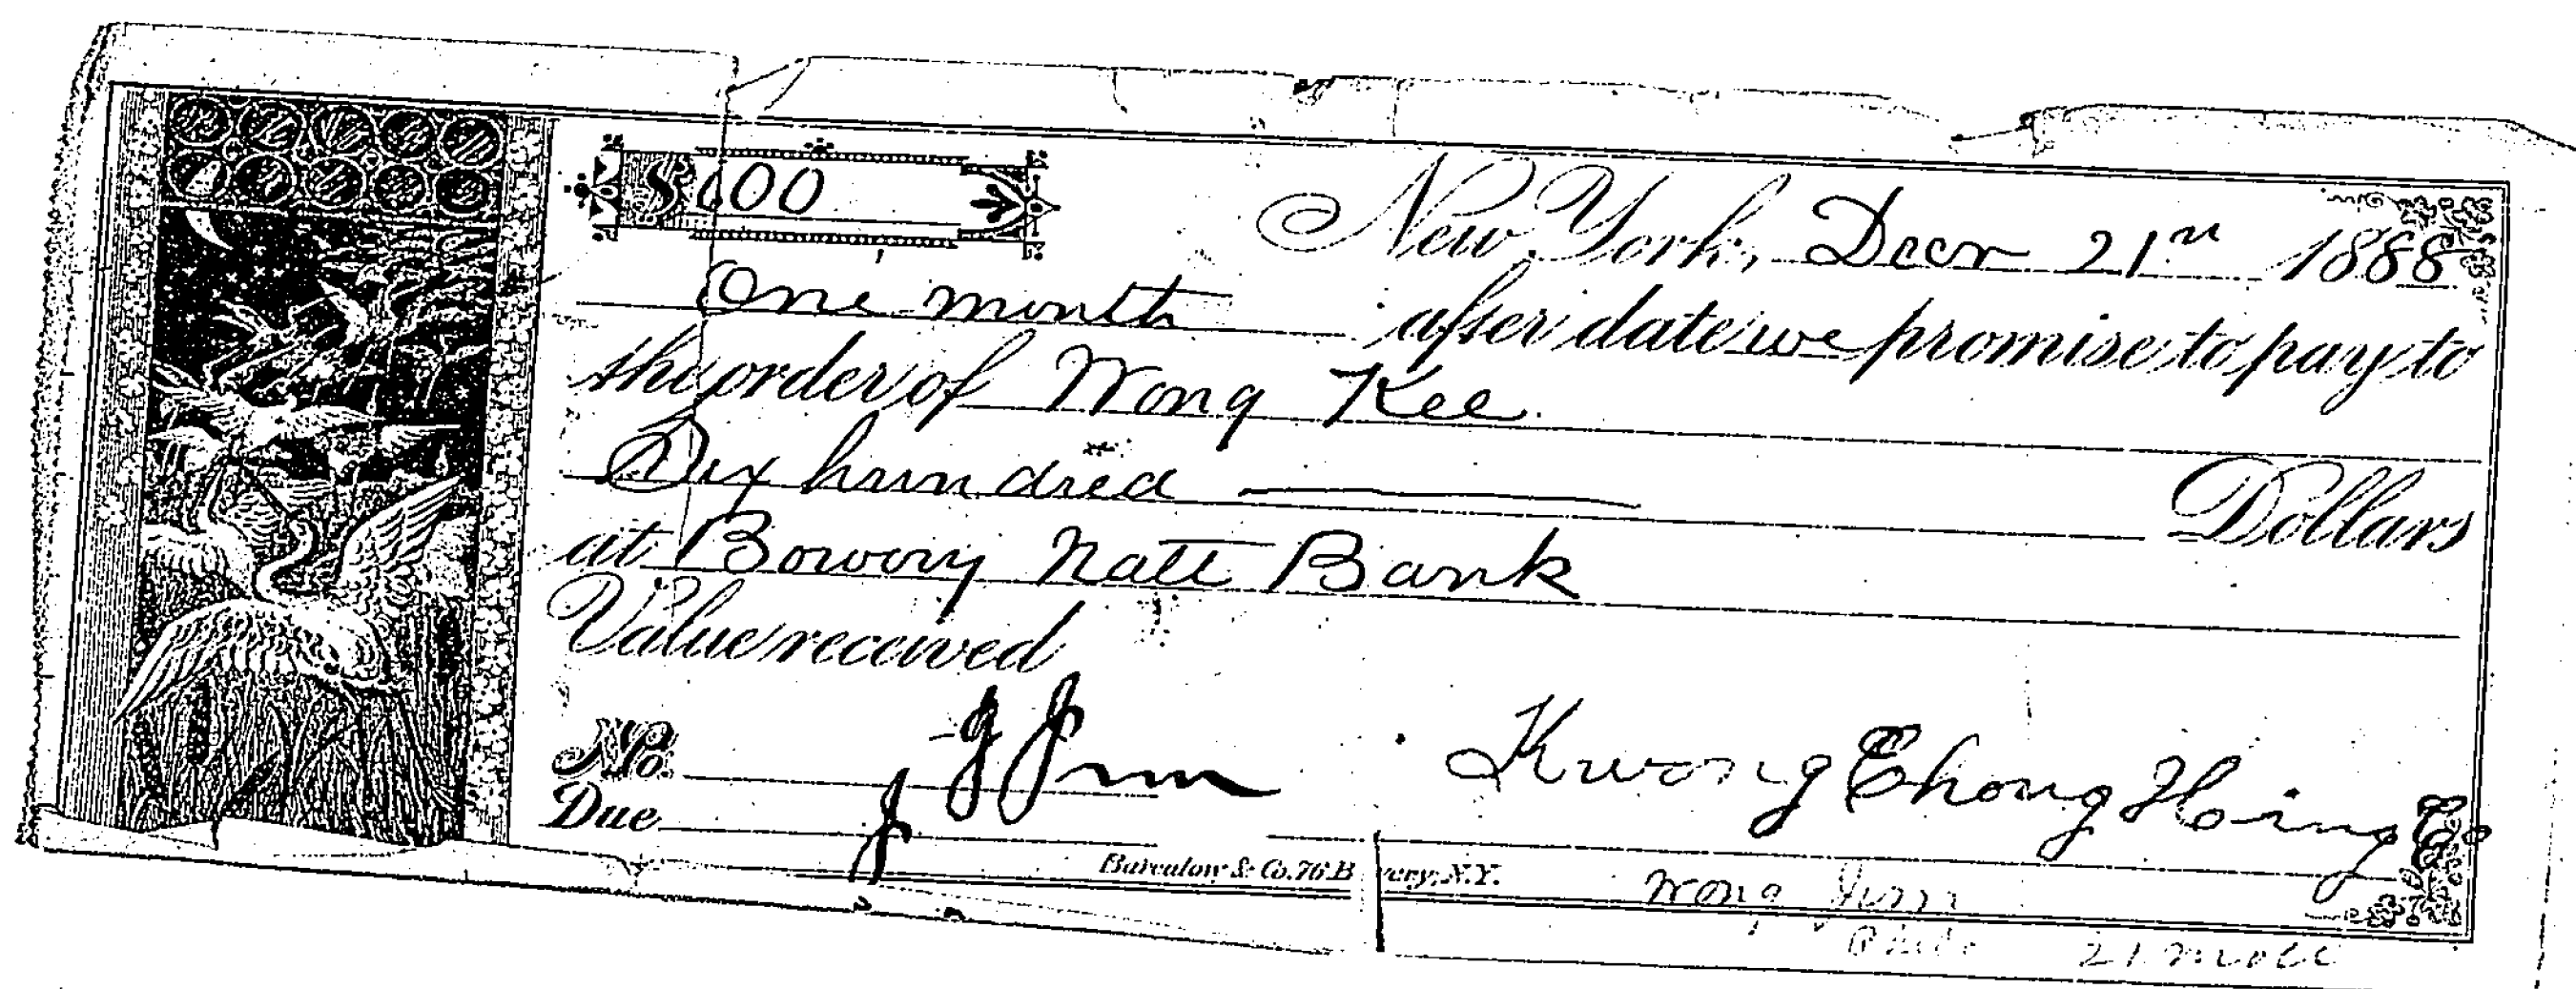 $600
New York, Decr 21st 1888
One month after date we promise to pay to
the order of Wong Kee
Six hundred Dollars
at Bowery Natl Bank
Value received
No.
Due
Kwong Chong Hing Co
Barcalow & Co. 76 Bowery, N.Y.
Wong
21